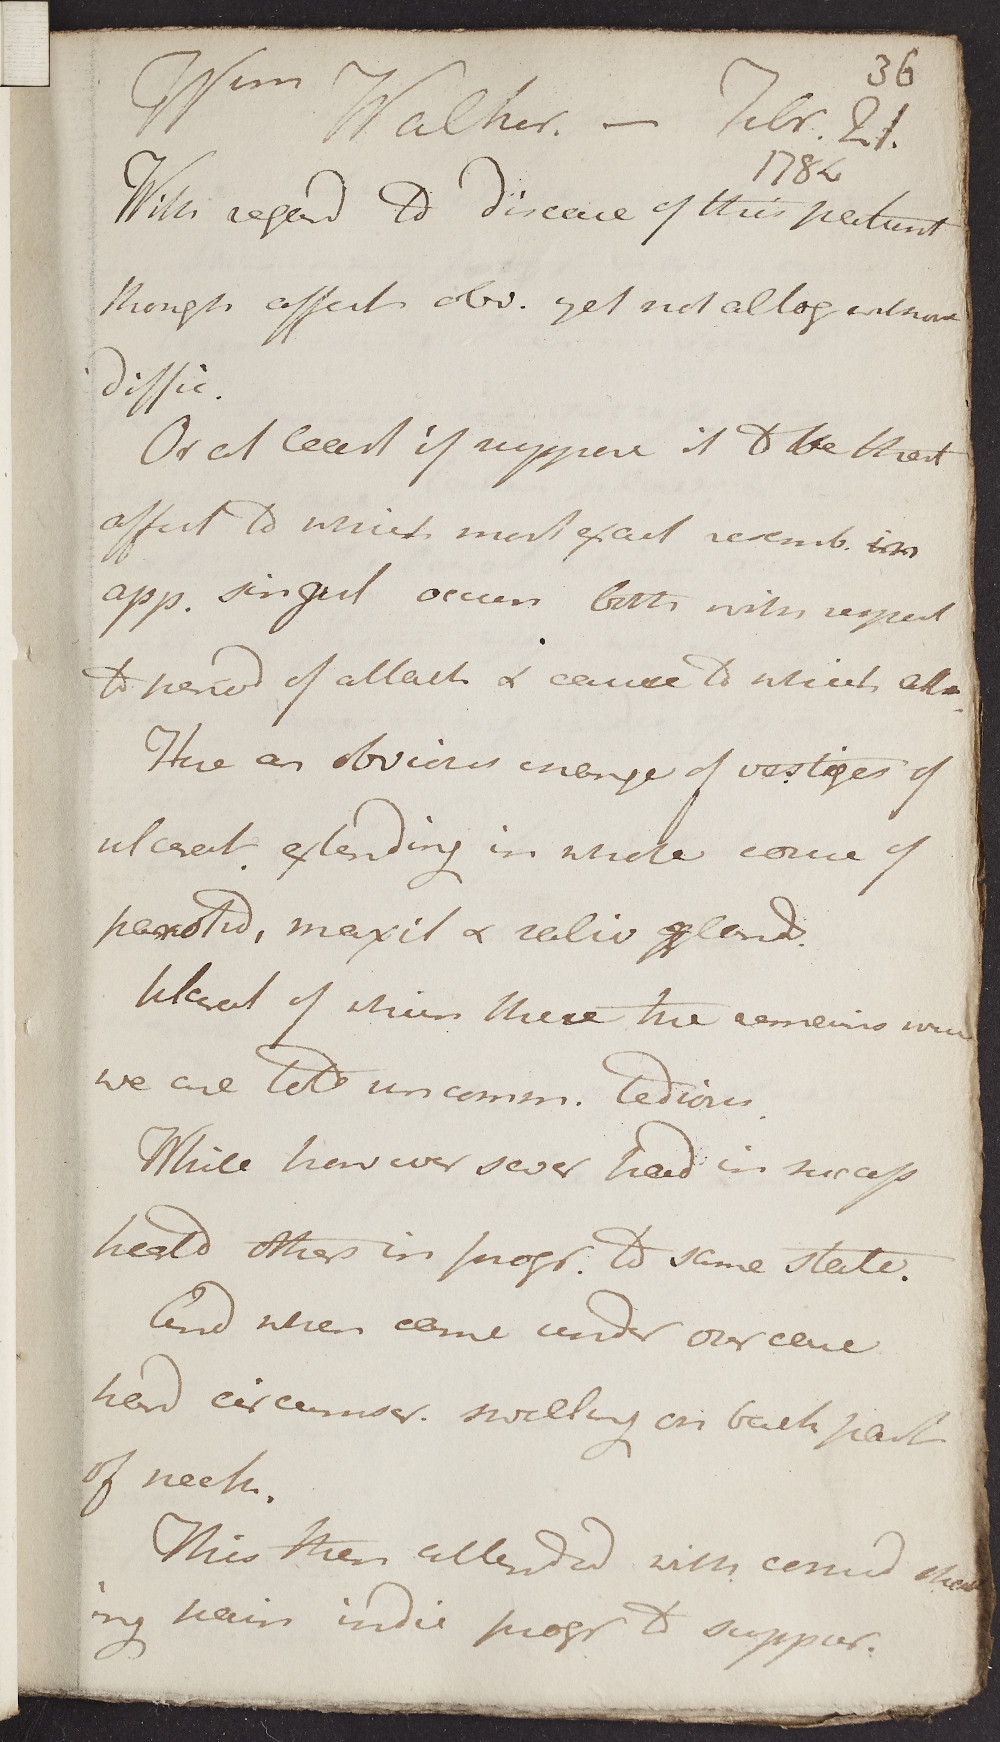 36
Wm Walker. — Febr. 21.
1784
With regard to disease of this patient
though affect obv. yet not altog without
diffic.
Or at least if suppose it to be that
affect to which most exact resemb. in
app. singul occurr both with respect
to period of attack & cause to which
Here an obvious change of vestiges of
ulcerat. extending in whole course of
parotid, maxil & saliv gland.
Ulcerat of which these the remains were
we are told uncomm. tedious.
While however sever had in success
heald others in progr. to same state.
And when came under our care
hard circumscr. swelling on back part
of neck.
This then attended with
ing pain indic progr to suppur.